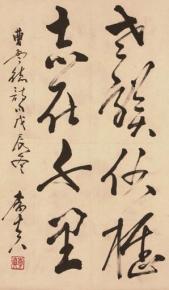 老驥伏櫪
志在千里
曹孟德詩句戊辰冬